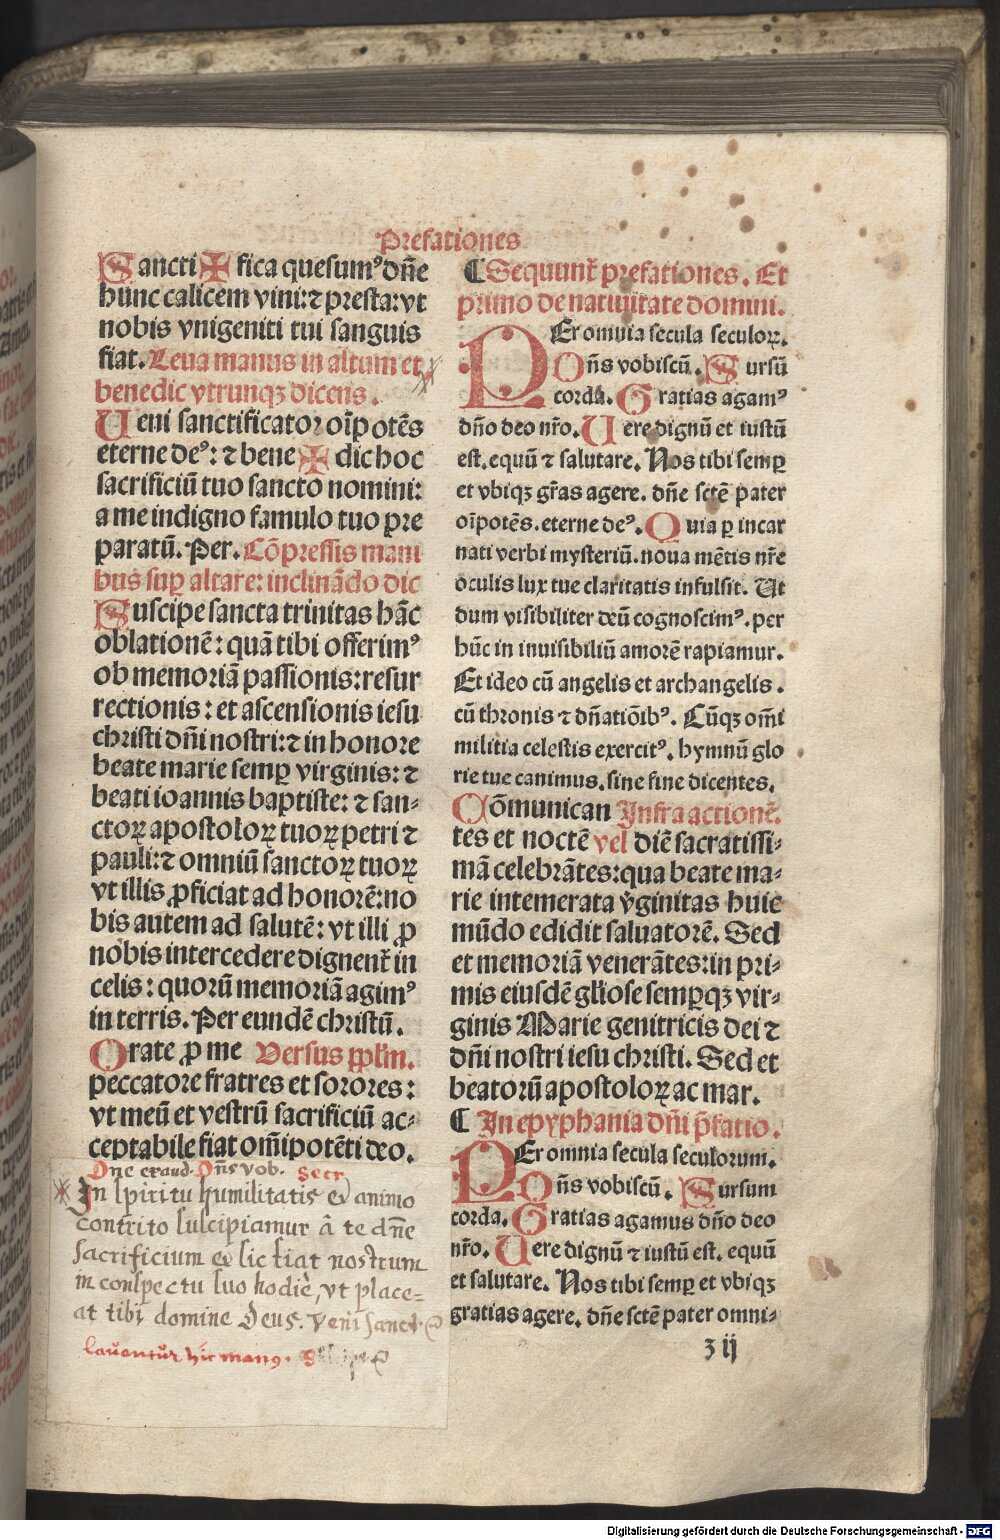 Prefationes
Sancti✠fica quesumꝰ dn̄e
hunc calicem vini: ⁊ presta: vt
nobis vnigeniti tui sanguis
fiat. Leua manus in altum et
benedic vtrunqꝫ dicens.
Ueni sanctificator oīpotēs
eterne deꝰ: ⁊ bene✠dic hoc
sacrificiū tuo sancto nomini:
a me indigno famulo tuo pre
paratū. Per. Cōpressis mani
bus suꝑ altare: inclinādo dic
Suscipe sancta trinitas hāc
oblationē: quā tibi offerimꝰ
ob memoriā passionis: resur
rectionis: et ascensionis iesu
christi dn̄i nostri: ⁊ in honore
beate marie semꝑ virginis: ⁊
beati ioannis baptiste: ⁊ san⸗
ctoꝝ apostoloꝝ tuoꝝ petri ⁊
pauli: ⁊ omniū sanctoꝝ tuoꝝ
vt illis ꝓficiat ad honorē: no
bis autem ad salutē: vt illi ꝓ
nobis intercedere dignent̄ in
celis: quorū memoriā agimꝰ
in terris. Per eundē christū.
Orate ꝓ me Versus ppl'm.
peccatore fratres et sorores:
vt meū et vestrū sacrificiū ac⸗
ceptabile fiat om̄ipotēti deo.
Dne exaud. Dn̄s vob. Secr
In spiritu humilitatis et animo
contrito suscipiamur â te dn̄e
sacrificium et sic fiat nostrum
in conspectu tuo hodiè, vt place⸗
at tibi domine Deus. Veni sanct.
lauentur hic manꝰ.
❡ Sequunt̄ prefationes. Et
primo de natiuitate domini.
PEr omnia secula seculoꝝ.
Dn̄s vobiscū. Sursū
corda. Gratias agamꝰ
dn̄o deo nr̄o. Uere dignū et iustū
est. equū ⁊ salutare. Nos tibi semꝑ
et vbiqꝫ gr̄as agere. dn̄e sctē pater
oīpotēs. eterne deꝰ. Quia ꝑ incar
nati verbi mysteriū. noua mētis nr̄e
oculis lux tue claritatis infulsit. Ut
dum visibiliter deū cognoscimꝰ. per
hūc in inuisibiliū amorē rapiamur.
Et ideo cū angelis et archangelis.
cū thronis ⁊ dn̄atiōibꝰ. Cūqꝫ om̄i
militia celestis exercitꝰ. hymnū glo
rie tue canimus. sine fine dicentes.
Cōmunican Infra actionē.
tes et noctē vel diē sacratissi⸗
mā celebrātes: qua beate ma⸗
rie intemerata v̓ginitas huic
mūdo edidit saluatorē. Sed
et memoriā venerātes: in pri⸗
mis eiusdē gl'iose semꝑqꝫ vir⸗
ginis Marie genitricis dei ⁊
dn̄i nostri iesu christi. Sed et
beatorū apostoloꝝ ac mar.
❡ In epyphania dn̄i p̄fatio.
PEr omnia secula seculorum.
Dn̄s vobiscū. Sursum
corda. Gratias agamus dn̄o deo
nr̄o. Uere dignū ⁊ iustū est. equū
et salutare. Nos tibi semꝑ et vbiqꝫ
gratias agere. dn̄e sctē pater omni⸗
ꝫ ij
Digitalisierung gefördert durch die Deutsche Forschungsgemeinschaft - DFG